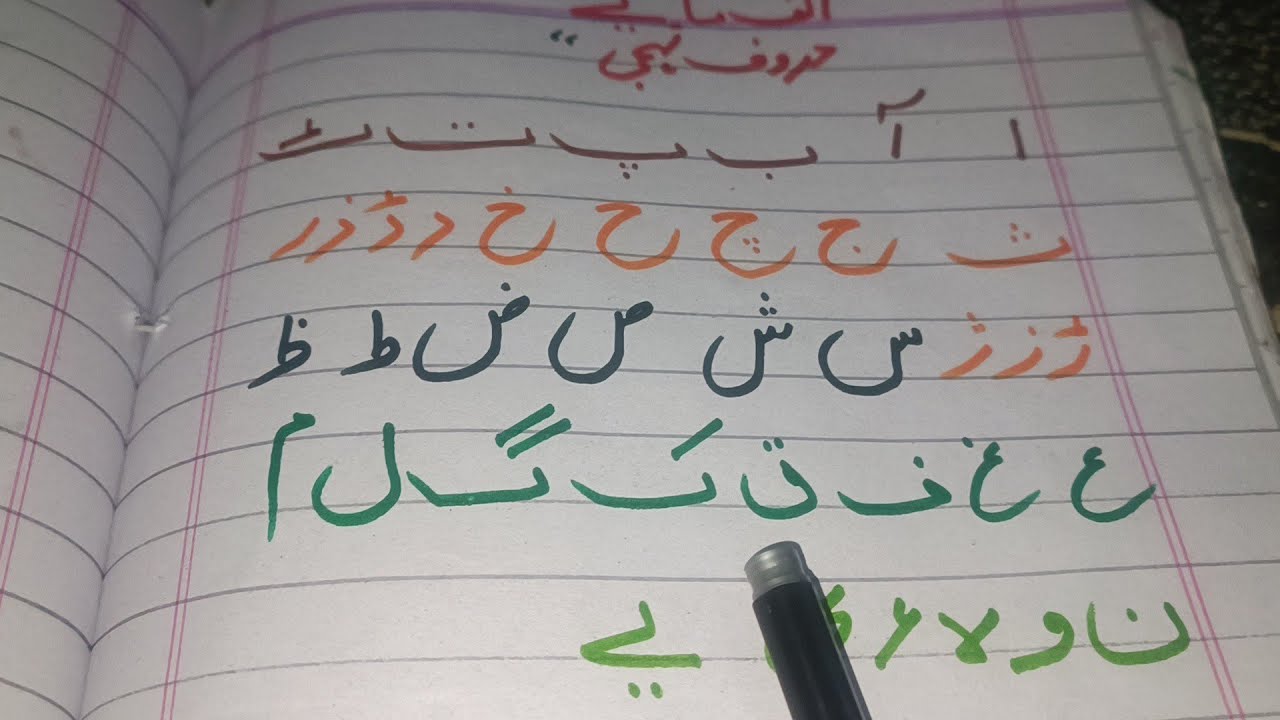 الف با یے
حروف تہجی "
ا آ ب پ ت ٹ
ث ج چ ح خ د ڈ ذ ر
ڑ ز ژ س ش ص ض ط ظ
ع غ ف ق ک گ ل م
ن و لا ء یے